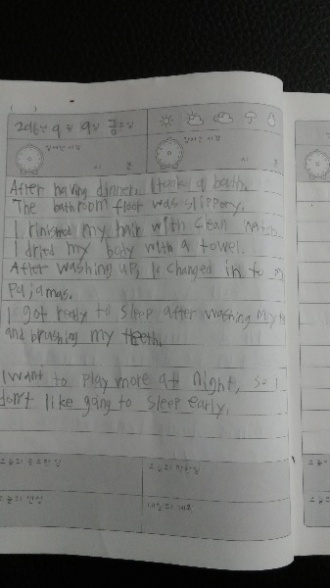 2016년 9월 9일 금요일
일어난 시각
잠자는 시각
시 분
시 분
After having dinner, I take a bath.
The bathroom floor was slippery.
I rinished my hair with clean water.
I dried my body with a towel.
After washing up, I changed in to m
Pajamas.
I got ready to sleep after washing my
and brushing my teeth.
I want to play more at night, so I
don't like gang to sleep early.
오늘의 중요한 일
오늘의 착한 일
오늘의 반성
내일의 계획